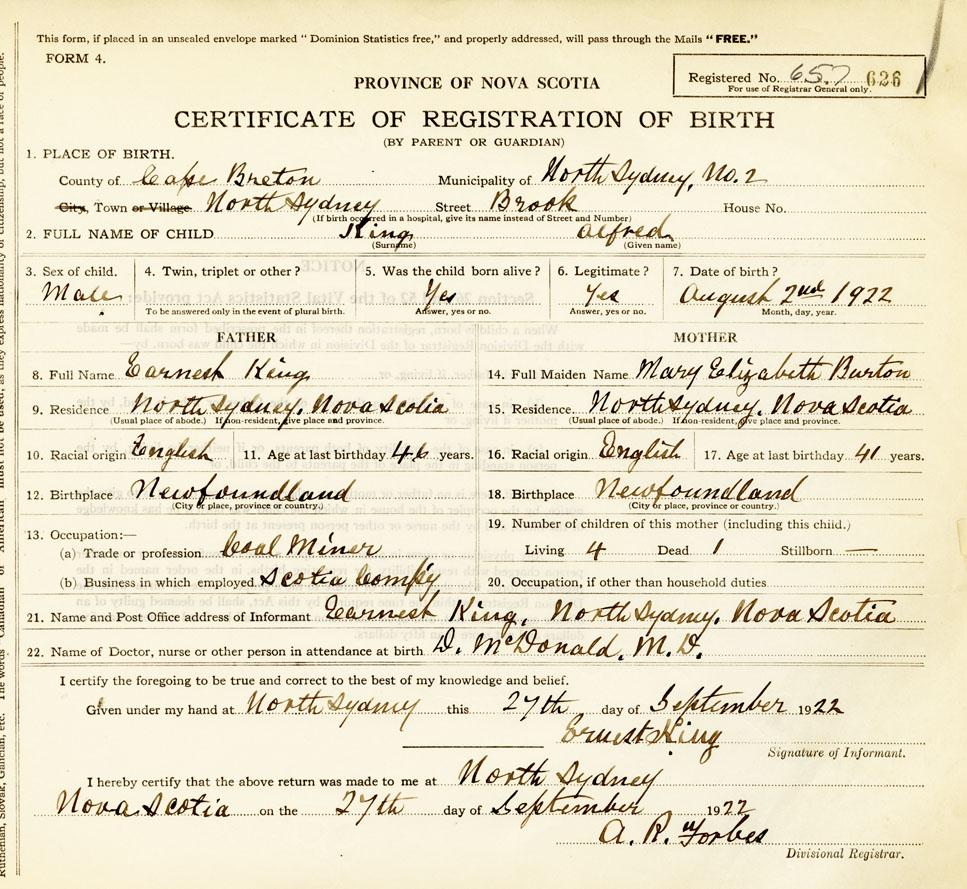 This form, if placed in an unsealed envelope marked "Dominion Statistics free," and properly addressed, will pass through the Mails "FREE."
FORM 4.
Registered No. 657 626
For use of Registrar General only.
PROVINCE OF NOVA SCOTIA
CERTIFICATE OF REGISTRATION OF BIRTH
(BY PARENT OR GUARDIAN)
1. PLACE OF BIRTH.
County of Cape Breton Municipality of North Sydney, No. 2
City, Town or Village North Sydney Street Brook House No.
(If birth occurred in a hospital, give its name instead of Street and Number)
2. FULL NAME OF CHILD King Alfred
(Surname) (Given name)
3. Sex of child. 4. Twin, triplet or other? 5. Was the child born alive? 6. Legitimate? 7. Date of birth?
Male Yes Yes August 2nd 1922
To be answered only in the event of plural birth. Answer, yes or no. Answer, yes or no. Month, day, year.
FATHER MOTHER
8. Full Name Earnest King 14. Full Maiden Name Mary Elizabeth Burton
9. Residence North Sydney, Nova Scotia 15. Residence. North Sydney, Nova Scotia
(Usual place of abode.) If non-resident, give place and province. (Usual place of abode.) If non-resident, give place and province.
10. Racial origin English 11. Age at last birthday 46 years. 16. Racial origin English 17. Age at last birthday 41 years.
12. Birthplace Newfoundland 18. Birthplace Newfoundland
(City or place, province or country.) (City or place, province or country.)
13. Occupation:— 19. Number of children of this mother (including this child.)
(a) Trade or profession Coal Miner Living 4 Dead 1 Stillborn —
(b) Business in which employed Scotia Comp'y 20. Occupation, if other than household duties
21. Name and Post Office address of Informant Earnest King, North Sydney, Nova Scotia
22. Name of Doctor, nurse or other person in attendance at birth D. McDonald, M.D.
I certify the foregoing to be true and correct to the best of my knowledge and belief.
Given under my hand at North Sydney this 27th day of September 1922
Ernest King
Signature of Informant.
I hereby certify that the above return was made to me at North Sydney
Nova Scotia on the 27th day of September 1922
A. R. Forbes
Divisional Registrar.